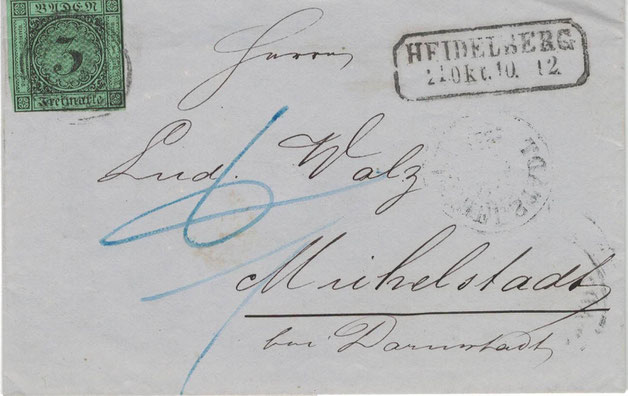 BADEN
3
Freimarke
HEIDELBERG
21 Okt. 10. 12.
Herrn
Lud. Walz
6
Michelstadt
bei Darmstadt